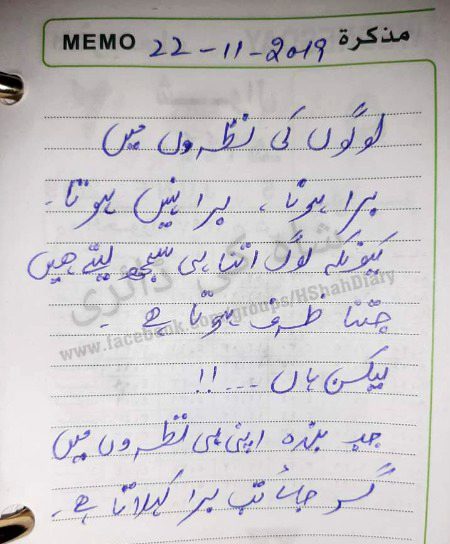 MEMO 22-11-2019 مذكرة
لوگوں کی نظروں میں
برا ہونا، برا نہیں ہوتا۔
کیونکہ لوگ اتنا ہی سمجھ لیتے ہیں
جتنا ظرف ہوتا ہے۔
لیکن ہاں ---!!
جب بندہ اپنی ہی نظروں میں
گر جائے تب برا کہلاتا ہے۔
شاہ کی ڈائری
www.facebook.com/groups/HShahDiary